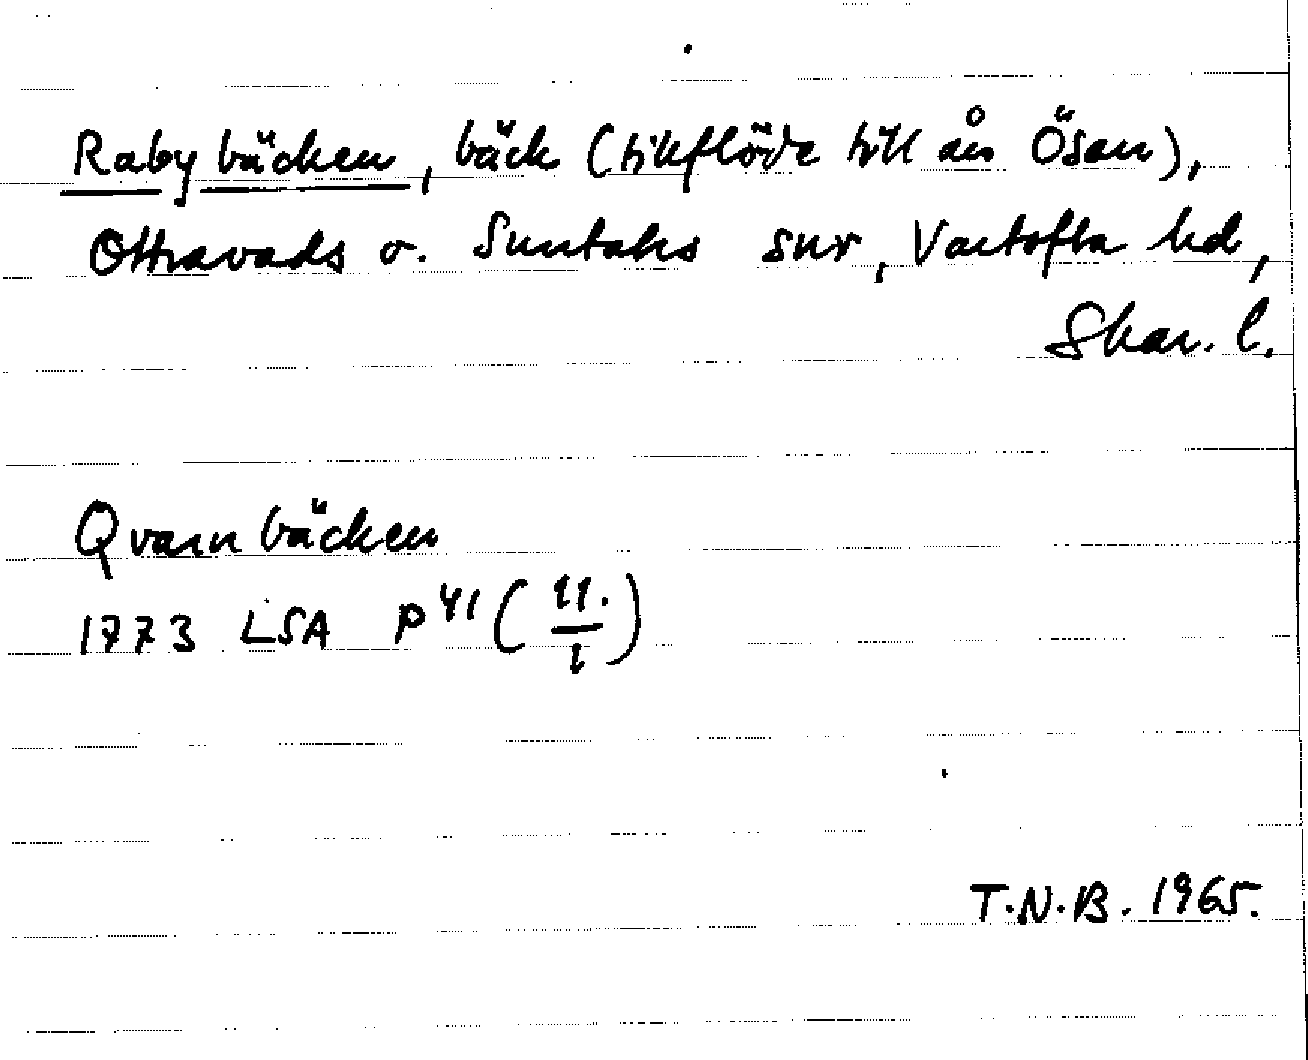 Rabybäcken, bäck (tillflöde till ån Ösan),
Ottravads o. Suntaks snr, Vartofta hd,
Skar. l.
Qvarnbäcken
1773 LSA P 41 (11./1)
T.N.B. 1965.